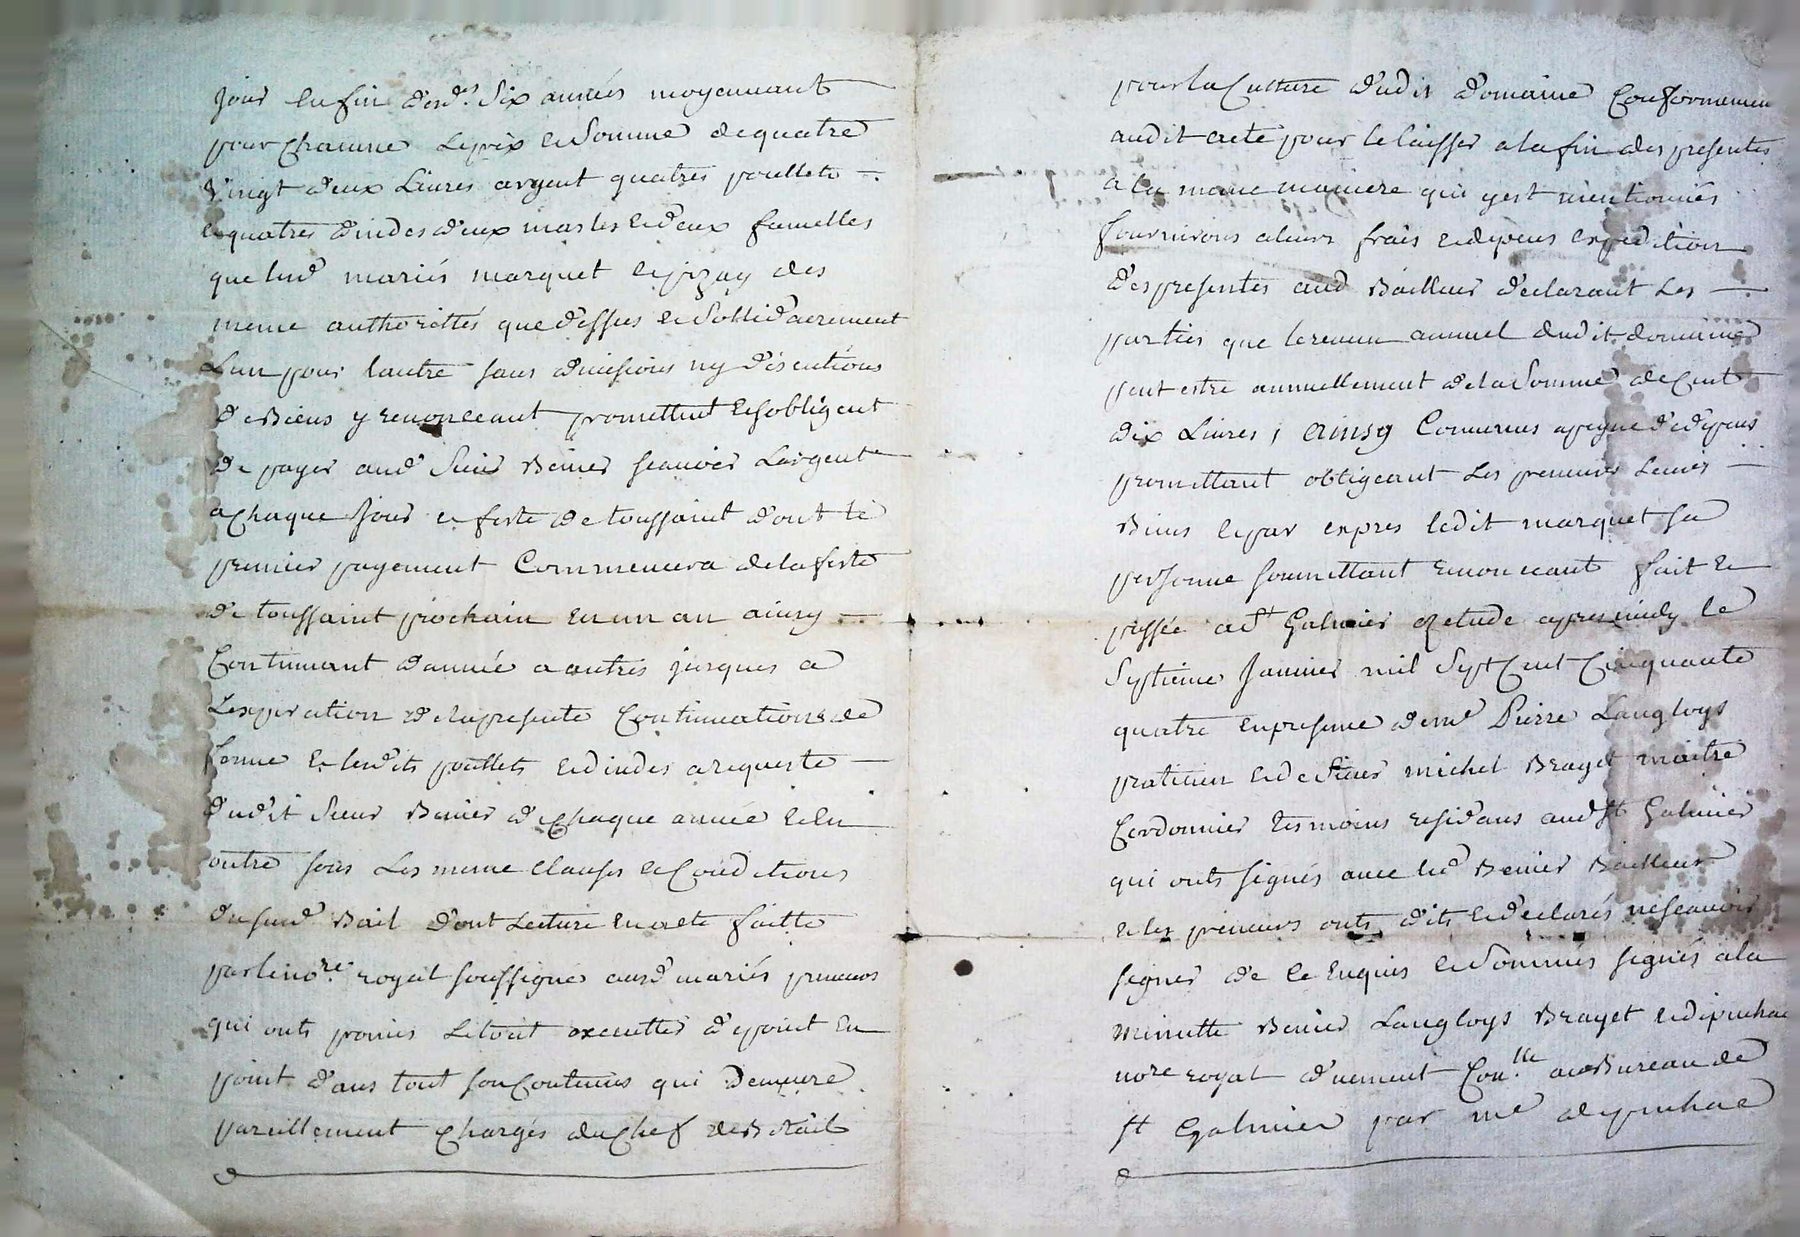 jour en fin desd.es six années moyennant
pour chacune Le prix et Somme de quatre
vingt deux Livres argent quatres poullets
et quatres dindes deux masles et deux femelles
que lesd mariés marquet et pizay des
meme authorittés que dessus et Sollidairement
L'un pour lautre sans divisions ny discutions
de Biens y renonceant promettent et sobligent
de payer aud Sieur Benier scavoir Largent
a chaque Jour et feste de toussaint dont le
premier payement Commencera de la feste
de toussaint prochain en un an ainsy
Continuant dannée a autres jusques a
Lexpiration de la presente Continuations de
ferme et lesdits poullets et dindes a requeste
dudit Sieur Benier de chaque année et En
outre sous Les meme clauses et Conditions
du susd Bail dont Lecture En a ete faitte
par le no.re royal soussigné ausd mariés preneurs
qui onts promis Le tout executter de point En
point dans tout son Contenus qui Demeure
pareillement chargés du chef de Betail
pour la Culture dudit domaine Conformemen
audit acte pour le laisser a la fin des presentes
a la meme maniere qui y est mentionnés
fournirons a leurs frais et depens expedition
des presentes aud Bailleur declarant Les
parties que le revenu annuel dudit domaine
peut estre annuellement de la Somme de Cent
dix Livres, ainsy Convenus a peyne de depens
promettant obligeant Les preneurs Leurs
Biens et par expres ledit marquet sa
personne soumettant renonceant fait et
passée a St Galmier etude apres midy le
Septieme Janvier mil Sept Cent Cinquante
quatre en presence de me Pierre Langloys
praticien et de Sieur michel Brayet maitre
Cordonnier tesmoins residans aud St Galmier
qui onts signés avec led Benier Bailleur
et les preneurs onts dits et declarés ne scavoir
signer de ce Enquis et Sommés signés a la
minutte Benier Langloys Brayet et depinhac
nore royal duement Con.lle au Bureau de
St Galmier par me depinhac